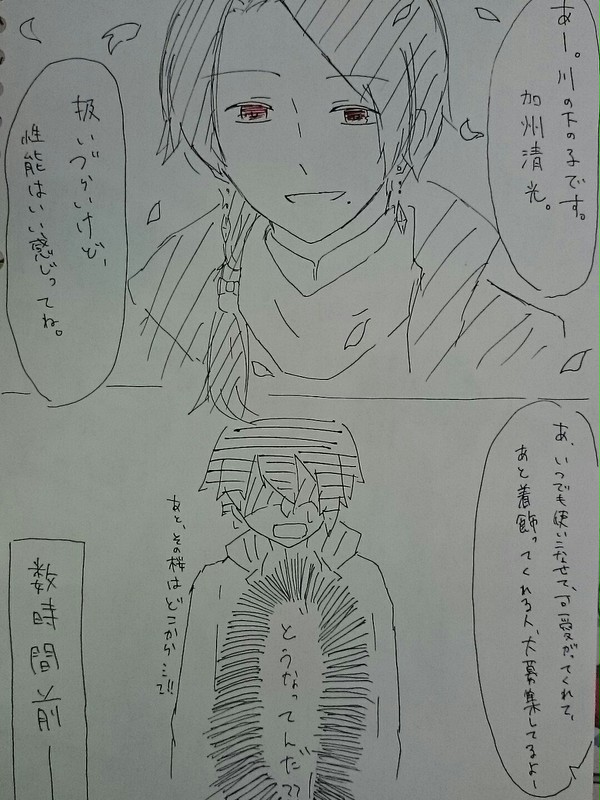 あー。川の下の子です。
加州清光。
扱いづらいけど、
性能はいい感じってね。
あ、いつでも使いこなせて、可愛がってくれて、
あと着飾ってくれる人、大募集してるよー
どうなってんだ??
あと、その桜はどこから…!!
数時間前―